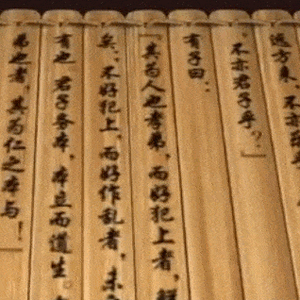 远方来，不亦
，不亦君子乎？』
有子曰：
『其为人也孝弟，而好犯上者，鲜
矣。不好犯上，而好作乱者，未
有也。君子务本，本立而道生。
弟也者，其为仁之本与！